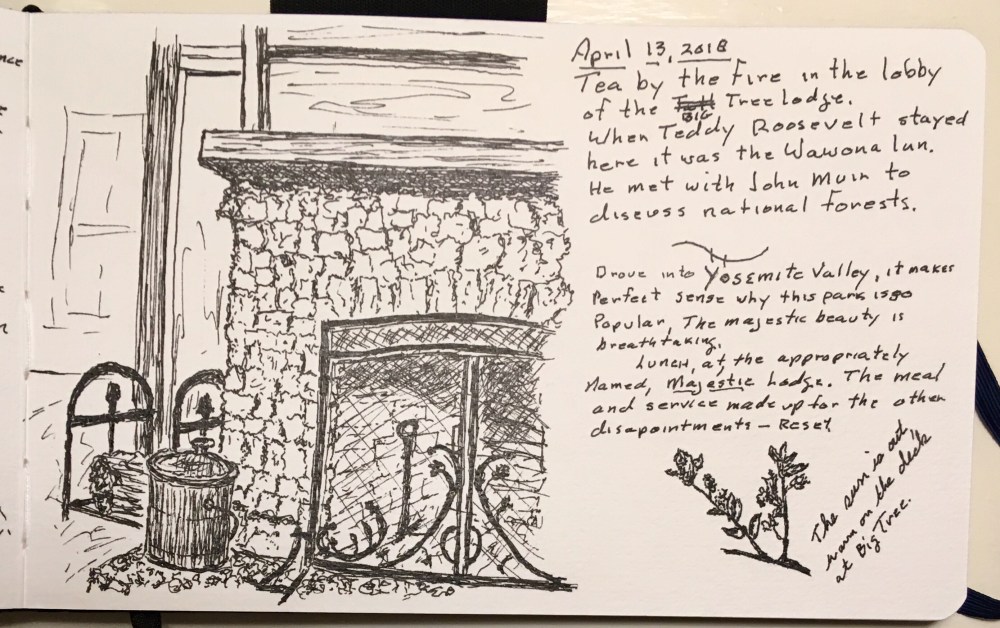 April 13, 2018
Tea by the Fire in the lobby
of the BIG Tree lodge.
When Teddy Roosevelt stayed
here it was the Wawona Inn.
He met with John Muir to
discuss national forests.
Drove into Yosemite Valley, it makes
Perfect sense why this park is so
Popular, The majestic beauty is
breathtaking.
Lunch, at the appropriately
Named, Majestic Lodge. The meal
and service made up for the other
disapointments – Reset
The sun is out
warm on the deck
at Big Tree.